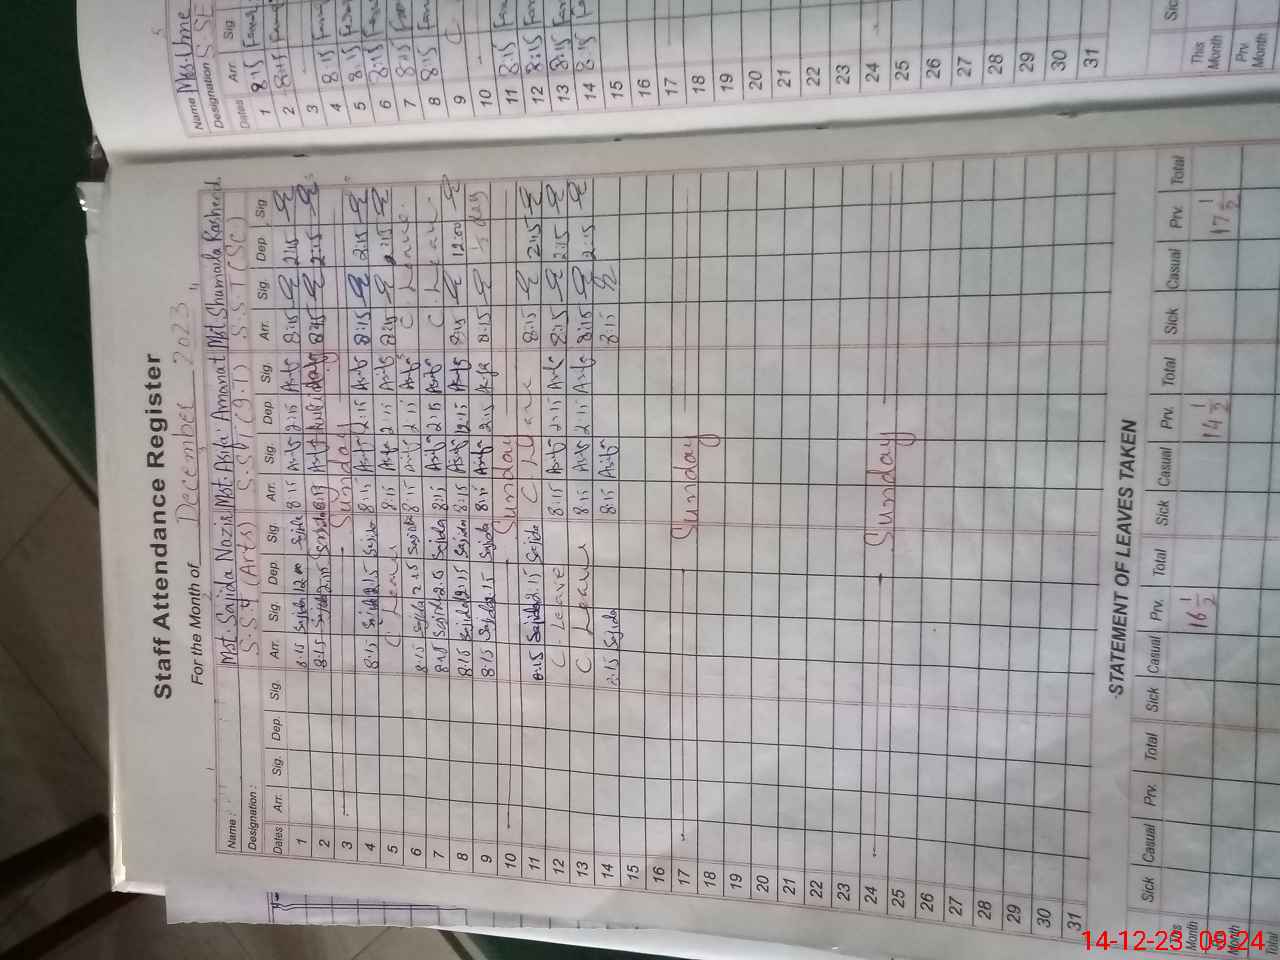 Staff Attendance Register
For the Month of December 2023
Name: Mst. Sajida Nazir Mst. Asifa Amanat Mst Shumaila Rasheed
Designation: S.S.T (Arts) S.ST (9.T) S.S.T (SC)
Dates Arr. Sig. Dep. Sig. Arr. Sig Dep Sig Arr. Sig. Dep Sig. Arr. Sig Dep. Sig
1 8:15 Sajida 12 Sajida 8:15 Asifa 2:15 Asifa 8:15 2:15
2 8:15 Sajida 2:15 Sajida 8:15 Asifa 8:15 2:15
3 Sunday
4 8:15 Sajida 2:15 Sajida 8:15 Asifa 2:15 Asifa 8:15 2:15
5 C. Leave 8:15 Asifa 2:15 Asifa 8:15 2:15
6 8:15 Sajida 2:15 Sajida 8:15 Asifa 2:15 Asifa C. Leave
7 8:15 Sajida 2:15 Sajida 8:15 Asifa 2:15 Asifa C. Leave
8 8:15 Sajida 12:15 Sajida 8:15 Asifa 12:15 Asifa 8:15 12:00
9 8:15 Sajida 2:15 Sajida 8:15 Asifa 2:15 Asifa 8:15 ½ day
10 Sunday
11 8:15 Sajida 2:15 Sajida C. Leave 8:15 2:15
12 C. Leave 8:15 Asifa 2:15 Asifa 8:15 2:15
13 C. Leave 8:15 Asifa 2:15 Asifa 8:15 2:15
14 8:15 Sajida 8:15 Asifa 8:15
15
16
17 Sunday
18
19
20
21
22
23
24 Sunday
25
26
27
28
29
30
31
STATEMENT OF LEAVES TAKEN
Sick Casual Prv. Total Sick Casual Prv. Total Sick Casual Prv. Total Sick Casual Prv. Total
This Month 16 ½ 14 ½ 17 ½
Prv. Month
Total
Name Mrs. Ume
Designation S.S
Dates Arr. Sig
1 8:15
2 8:15
3
4 8:15
5 8:15
6 8:15
7 8:15
8 8:15
9 C
10
11 8:15
12 8:15
13 8:15
14 8:15
15
16
17
18
19
20
21
22
23
24
25
26
27
28
29
30
31
Sic
This Month
Prv. Month
14-12-23 09:24